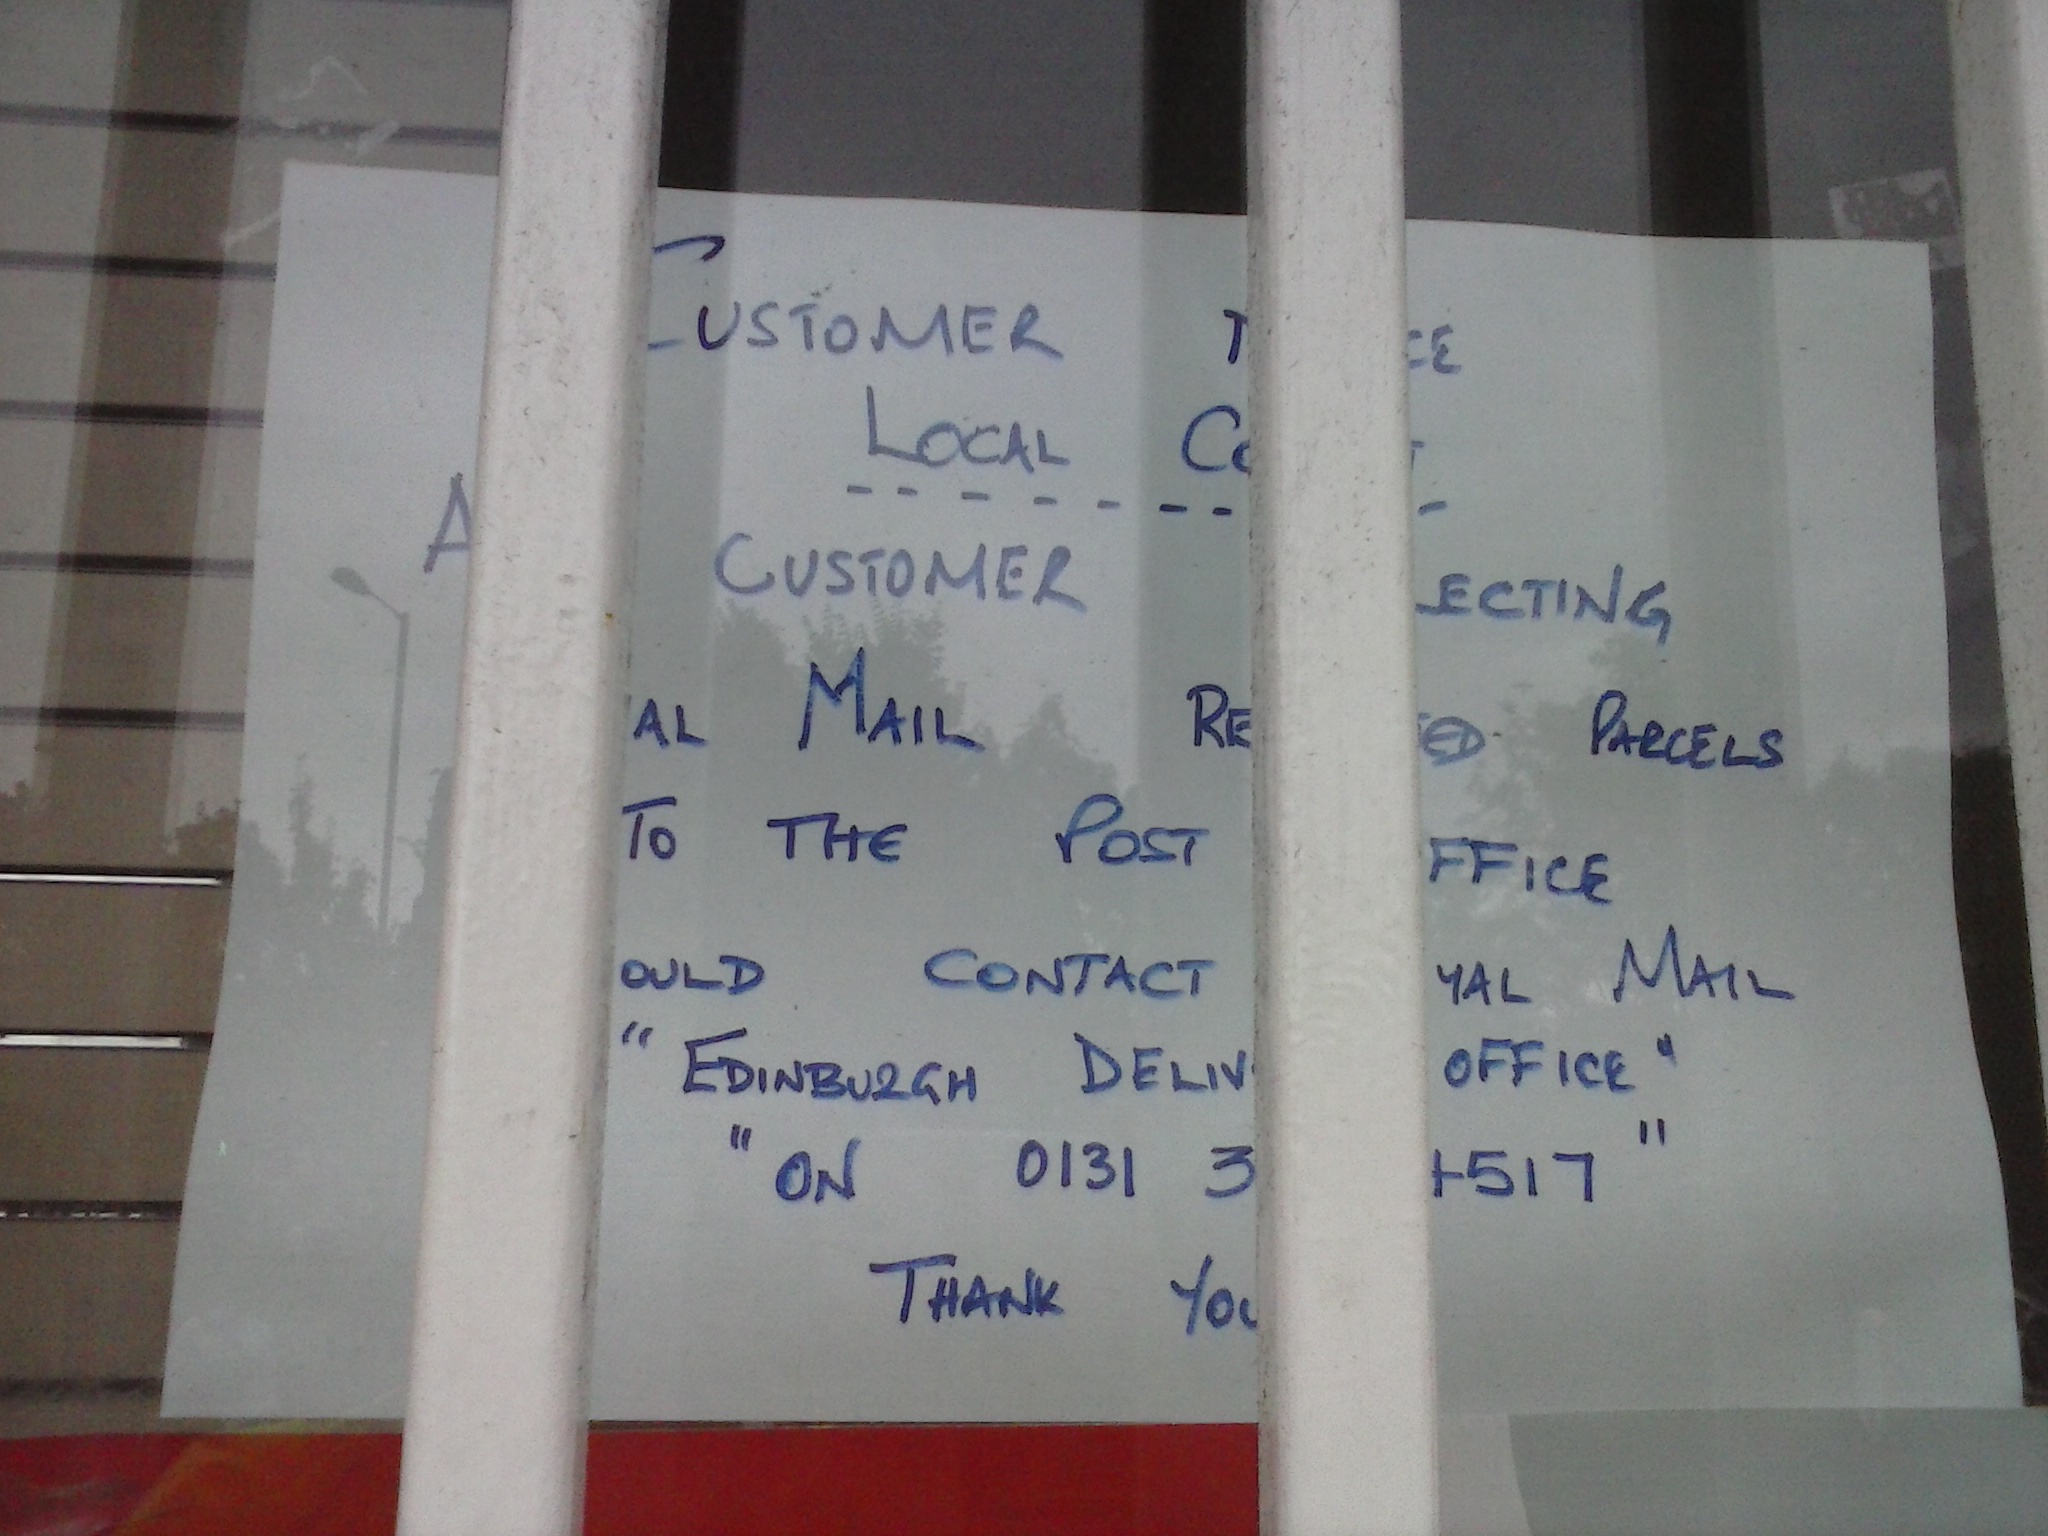 CUSTOMER
LOCAL
CUSTOMER LECTING
AL MAIL RE ED PARCELS
TO THE POST FFICE
OULD CONTACT YAL MAIL
"EDINBURGH DELIV OFFICE"
"ON 0131 3 4517"
THANK YOU